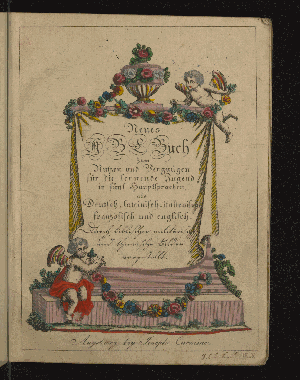 Neues
A B C Buch
zum
Nutzen und Vergnügen
für die lernende Jugend
in fünf Hauptsprachen
als
Deutsch, lateinisch, italienisch
französisch und englisch.
Durch
und
Augsburg bey Joseph Carmine.